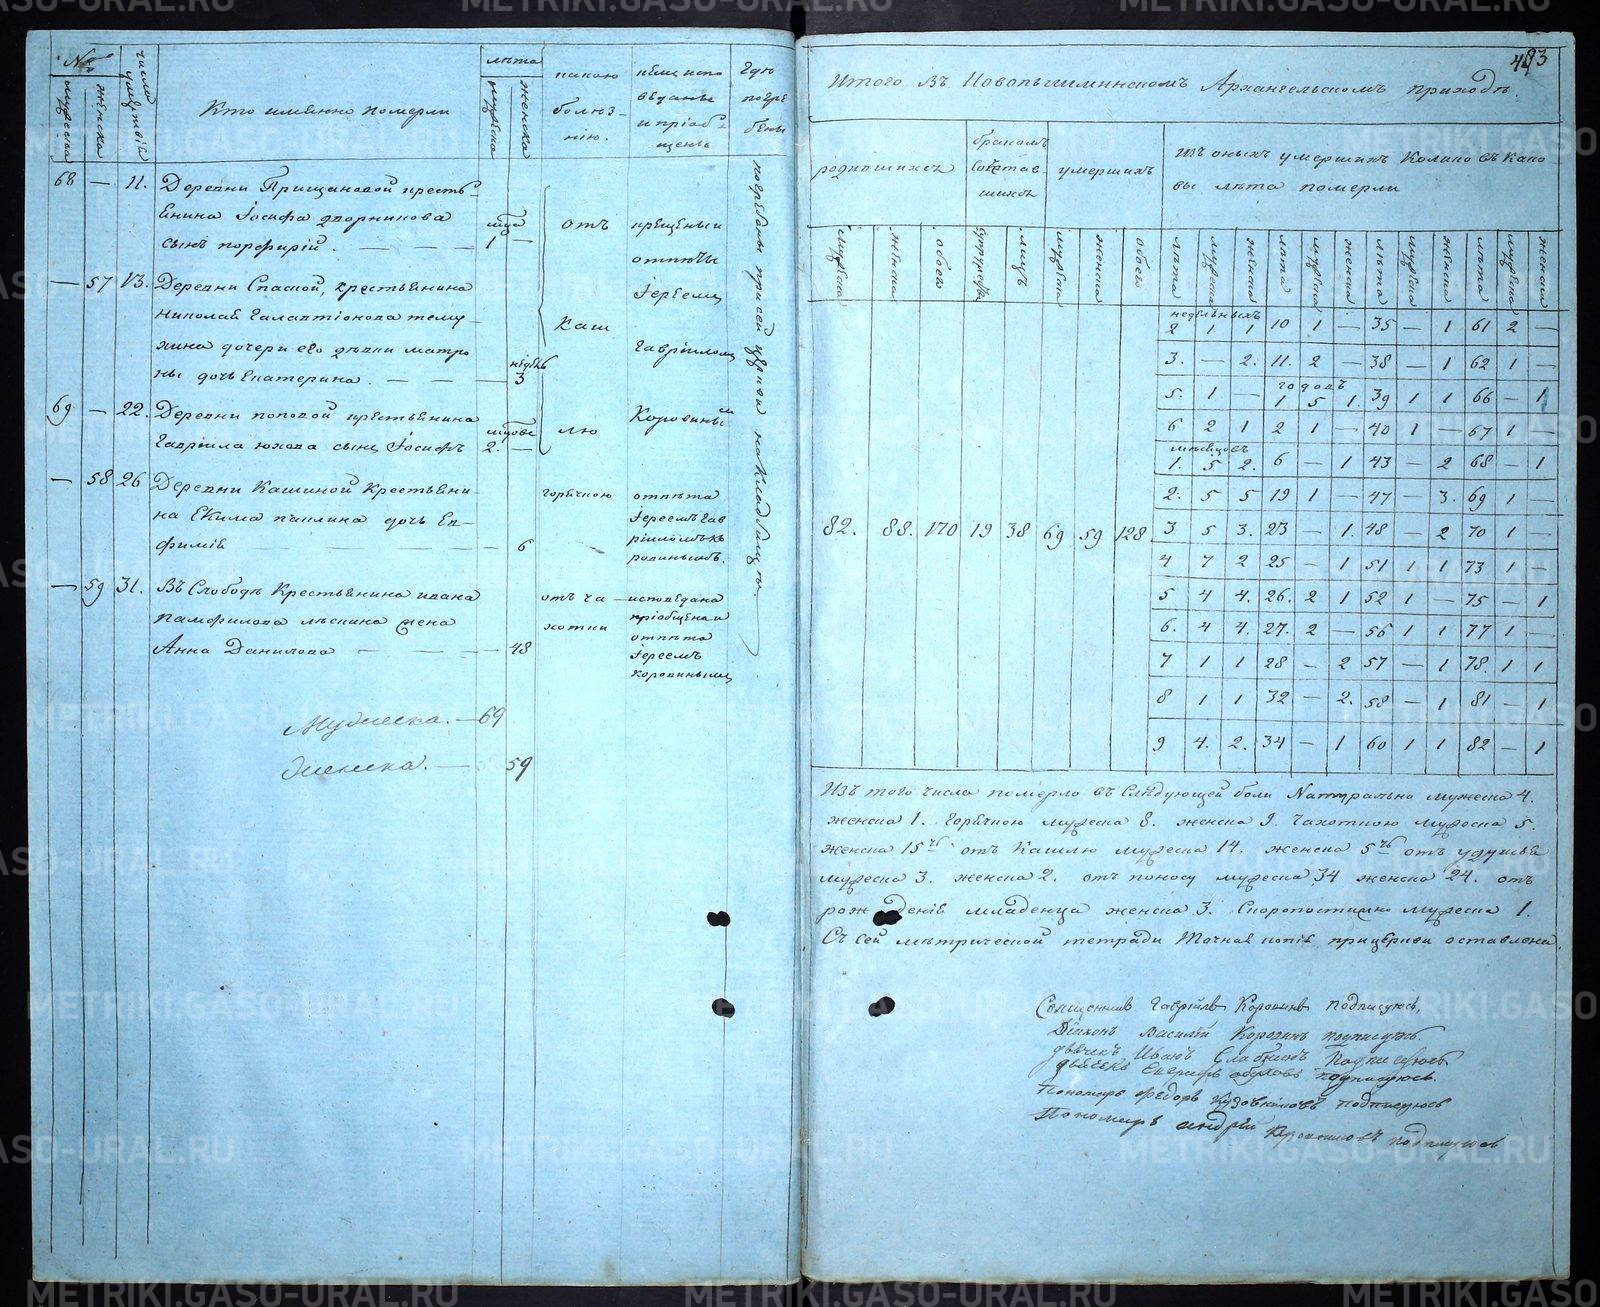 №
мужеска
женска
число смертей
Кто именно померли
лѣта
мужеска
женска
какою
болѣз-
нію.
кѣмъ испо
вѣданы
и пріоб-
щены
Гдѣ
погре
бены
68 — 11. Деревни Прищановой кресть-
янина Іосифа дворникова
сынъ порфирій. — 1 —
— 57 13. Деревни Спаской, крестьянина
николая Галактіонова
дочери его дѣвки матро
ны дочь Екатерина. — — — 3
недѣль
69 — 22. Деревни поповой крестьянина
Гавріила юхова сынъ Іосифъ 2. —
— 58 26 Деревни Кашиной Крестьяни
на Екима павлина дочь Ев-
фимія — — — 6
— 59 31. Въ Слободѣ Крестьянина ивана
памфилова лѣскина жена
Анна Данилова — — — 48
отъ
каш
лю
горячкою
отъ ча-
хотки
крещены и
отпѣты
Іереемъ
Гавріиломъ
Коровинымъ
отпѣта
Іереемъ Гав
ріиломъ Ко
ровинымъ.
исповедана
пріобщена и
отпѣта
Іереемъ
коровинымъ
погребены при сей церкви на кладбищѣ.
Мужеска. — 69
Женска. — 59
Итого Въ Новопышминскомъ Архангельскомъ приходѣ.
родившихся
бракомъ
сочетав-
шихся
умершихъ
Изъ оныхъ умершихъ Колико въ како
вы лѣта померли
мужеска женска обоего супружествъ лицъ мужеска женска обоего лѣта мужеска женска лѣта мужеска женска лѣта мужеска женска лѣта мужеска женска
недѣльныхъ
2 1 1 10 1 — 35 — 1 61 2 —
3. — 2. 11. 2 — 38 — 1 62 1 —
годовъ
5. 1 — 1 5 1. 39 1 1 66 — 1
6 2 1 2 1 — 40 1 — 67 1 —
месяцовъ
1. 5 2. 6 — 1 43 — 2 68 — 1
2. 5 5 19 1 — 47 — 3. 69 1 —
82. 88. 170 19 38 69 59 128 3 5 3. 23 — 1. 48 — 2 70 1 —
4 7 2 25 — 1 51 1 1 73 1 —
5 4 4. 26. 2 1 52 1 — 75 — 1
6. 4 4. 27. 2 — 56 1 1 77 1 —
7 1 1 28 — 2 57 — 1 78. 1 1
8 1 1 32 — 2. 58 — 1 81 — 1
9 4. 2. 34 — 1 60 1 1 82 — 1
Изъ того числа померло въ Слѣдующей боли Натурально мужеска 4.
женска 1. Горячкою мужеска 8. женска 9. Чахоткою мужеска 5.
женска 15 отъ Кашлю мужеска 14. женска 5 отъ удушья
мужеска 3. женска 2. отъ поносу мужеска 34 женска 24. отъ
рожденія младенца женска 3. Скоропостижно мужеска 1.
Съ сей мѣтрической тетради Точная копія прицеркви оставлена.
Священникъ Гавріилъ Коровинъ подписуюсь,
Діяконъ Василій Коровинъ подписуюсь
дьячекъ Иванъ Слабнинъ Подписуюсь
дьячекъ подписуюсь.
Пономарь Федоръ Кузовниковъ подписуюсь
Пономарь андрей подписуюсь
METRIKI.GASO-URAL.RU